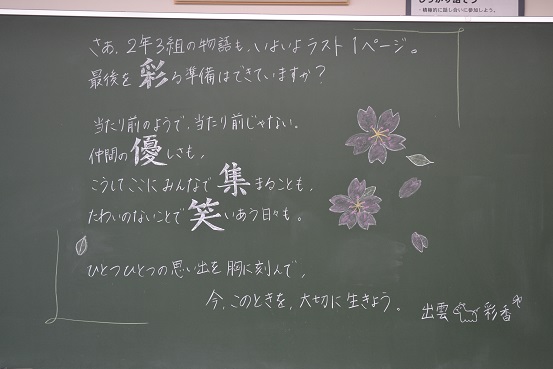 ・積極的に話し合いに参加しよう。
さあ、2年3組の物語も、いよいよラスト1ページ。
最後を彩る準備はできていますか？
当たり前のようで、当たり前じゃない。
仲間の優しさも、
こうしてここにみんなで集まることも、
たわいのないことで笑いあう日々も。
ひとつひとつの思い出を胸に刻んで、
今、このときを、大切に生きよう。
出雲 彩香